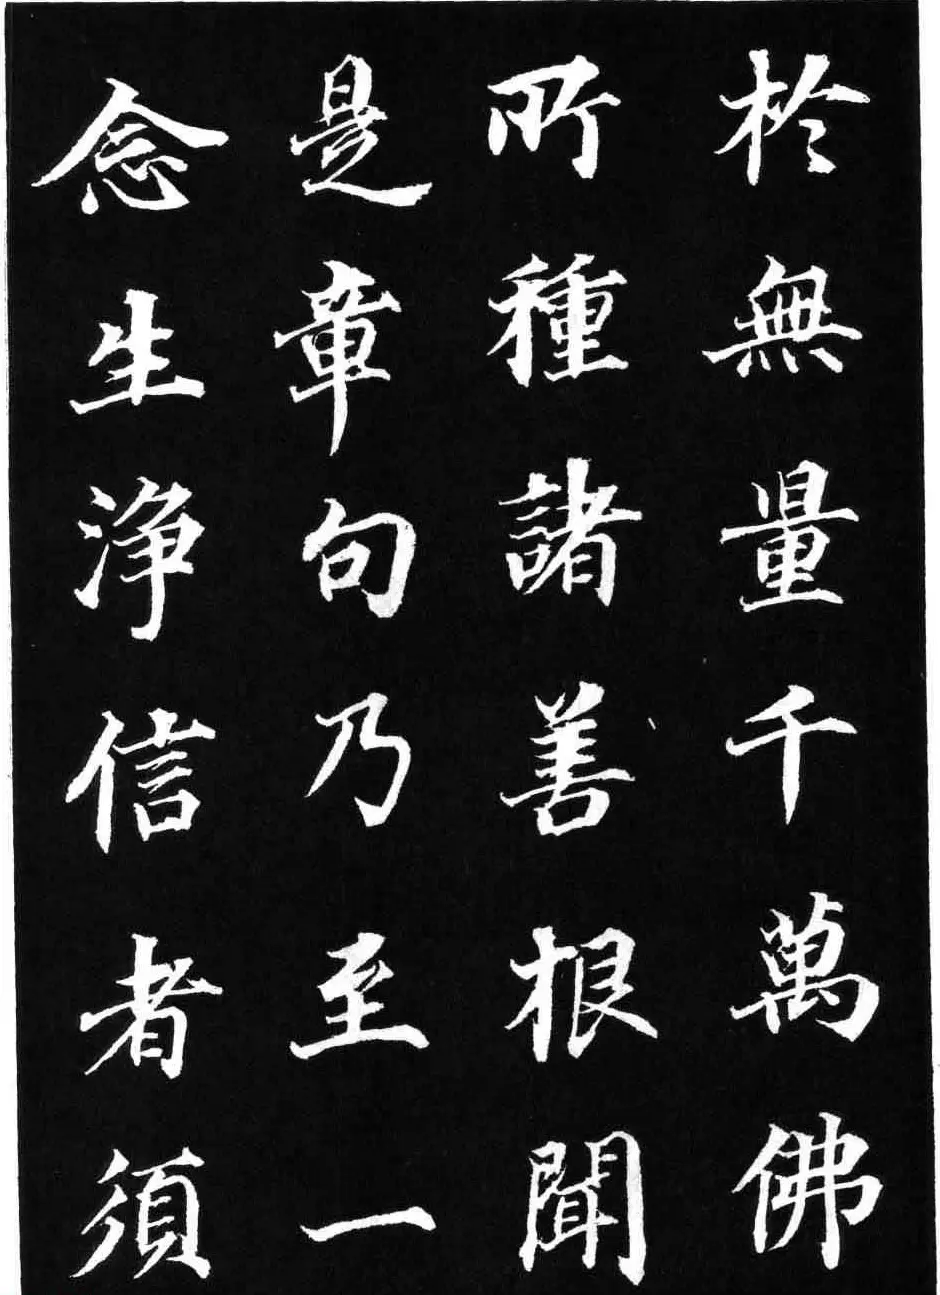 於無量千萬佛
所種諸善根聞
是章句乃至一
念生淨信者須